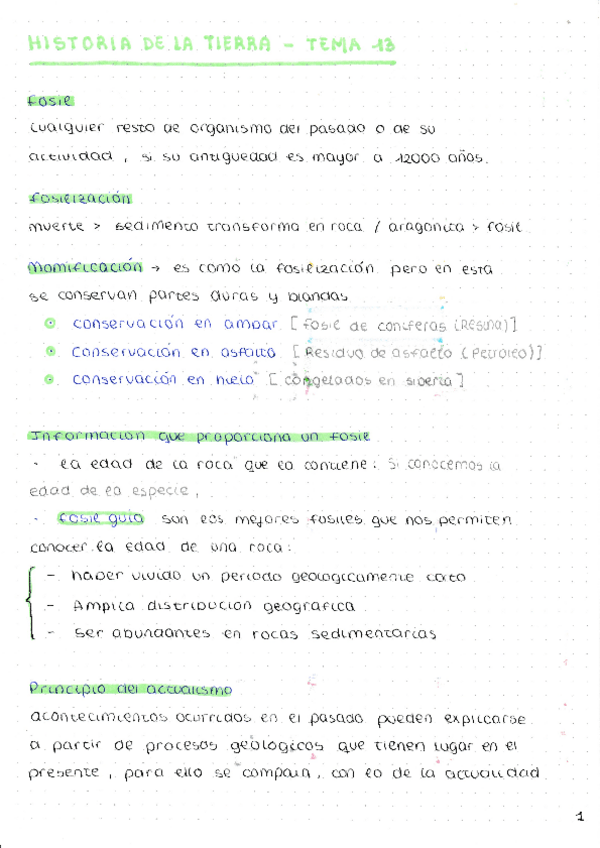 HISTORIA DE LA TIERRA - TEMA 13
Fosil
Cualquier resto de organismo del pasado o de su
actividad, si su antiguedad es mayor a 12000 años.
Fosilización
muerte > sedimento transforma en roca / aragonita > fosil
Momificación → es como la fosilización pero en esta
se conservan partes duras y blandas
conservación en ambar [Fosil de coniferas (Resina)]
conservación en asfalto [Residuo de asfalto (Petroleo)]
conservación en hielo [congelados en siberia]
Información que proporciona un fosil
· la edad de la roca que lo contiene: si conocemos la
edad de la especie,
· fosil guia son los mejores fosiles que nos permiten
conocer la edad de una roca:
- haber vivido un periodo geologicamente corto
- Amplia distribución geografica
- ser abundantes en rocas sedimentarias
Principio del actualismo
acontecimientos ocurridos en el pasado pueden explicarse
a partir de procesos geologicos que tienen lugar en el
presente, para ello se compara, con lo de la actualidad
1